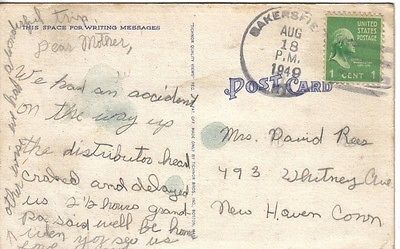 THIS SPACE FOR WRITING MESSAGES
Dear Mother,
We had an accident
on the way up
the distributor head
craked and delayed
us 2½ hours grand
Pa. said we'll be home
when you see us
other wise we had a good
ful trip
POST CARD
BAKERSFIE
AUG
18
P.M.
1940
UNITED STATES
POSTAGE
1 CENT 1
Mrs. David Rees
493 Whitney Ave
New Haven Conn